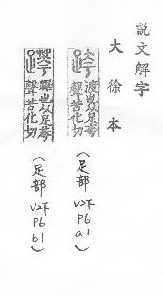 說文解字
大徐本
跨 渡也从足夸
聲苦化切
(足部 V2下 P6 a1)
也从足
聲苦化切
(足部 V2下 P6 b1)